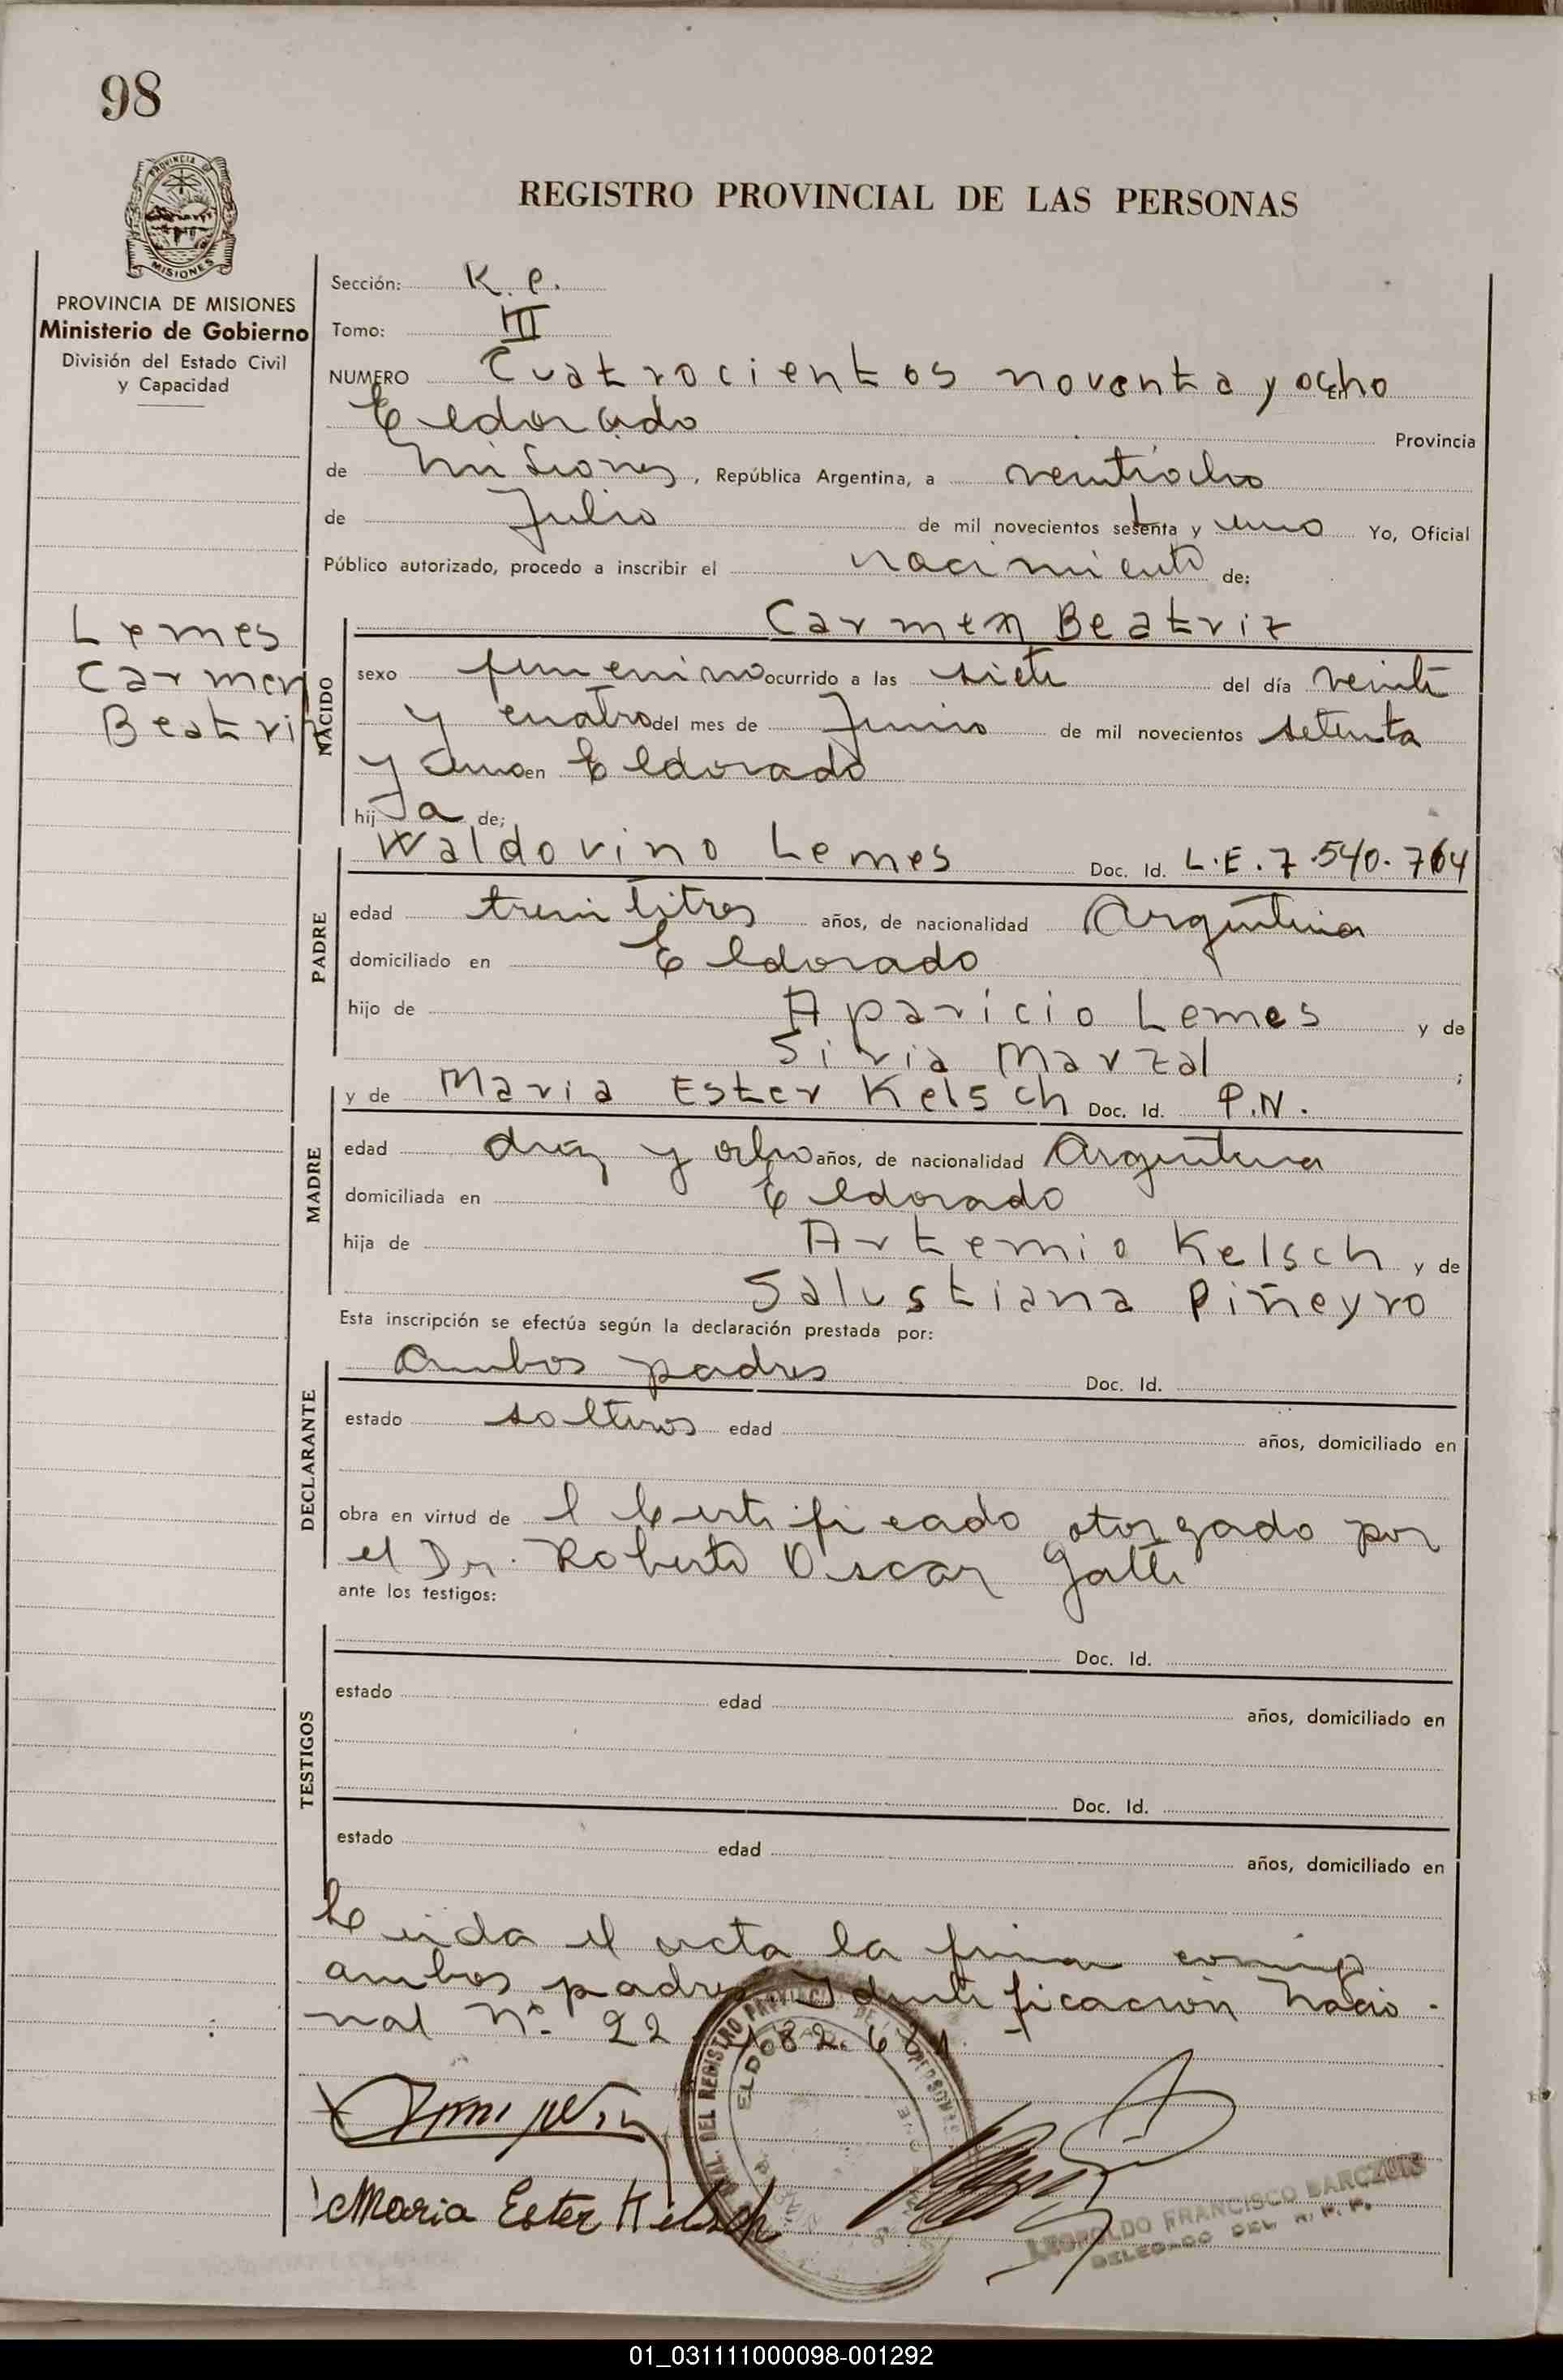 98
PROVINCIA DE MISIONES
Ministerio de Gobierno
División del Estado Civil
y Capacidad
REGISTRO PROVINCIAL DE LAS PERSONAS
Sección: K. P.
Tomo: III
NUMERO Cuatrocientos noventa y ocho En
Eldorado Provincia
de Misiones, República Argentina, a veintiocho
de Julio de mil novecientos setenta y uno Yo, Oficial
Público autorizado, procedo a inscribir el nacimiento de:
Lemes
Carmen
Beatriz
NACIDO
Carmen Beatriz
sexo femenino ocurrido a las siete del día veinti
y cuatro del mes de Junio de mil novecientos setenta
y uno en Eldorado
hij a de;
PADRE
Waldovino Lemes Doc. Id. L.E. 7.540.764
edad treintitres años, de nacionalidad Argentina
domiciliado en Eldorado
hijo de Aparicio Lemes y de
Siria Marzal ;
MADRE
y de Maria Ester Kelsch Doc. Id. P.N.
edad diez y ocho años, de nacionalidad Argentina
domiciliada en Eldorado
hija de Artemio Kelsch y de
Salustiana Piñeyro
Esta inscripción se efectúa según la declaración prestada por:
DECLARANTE
Ambos padres Doc. Id.
estado solteros edad años, domiciliado en
obra en virtud de l Certificado otorgado por
el Dr. Roberto Oscar Galli
ante los testigos:
TESTIGOS
Doc. Id.
estado edad años, domiciliado en
Doc. Id.
estado edad años, domiciliado en
Leida el acta la firman conmigo
ambos padres. Identificación Nacio
nal Nº 22
Maria Ester Kelsch
ELDORADO
LEOPOLDO FRANCISCO BARCZUIS
DELEGADO DEL R. P. P.
01_031111000098-001292